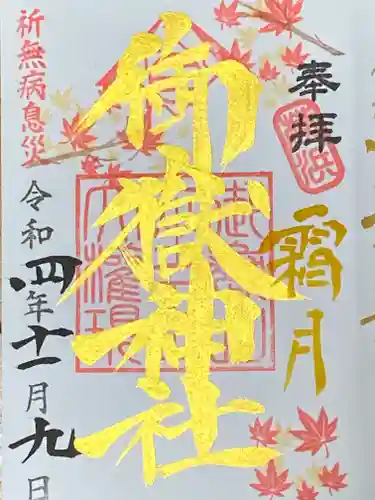 奉拝
霜月
御嶽神社
祈無病息災
令和四年十一月九日